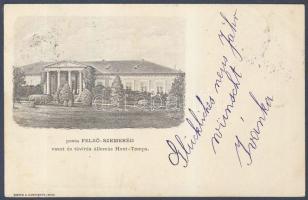 posta FELSŐ-SZEMERÉD
vasut és távirda állomás Hont-Tompa.
Glückliches neues Jahr
wünscht
Ivánka